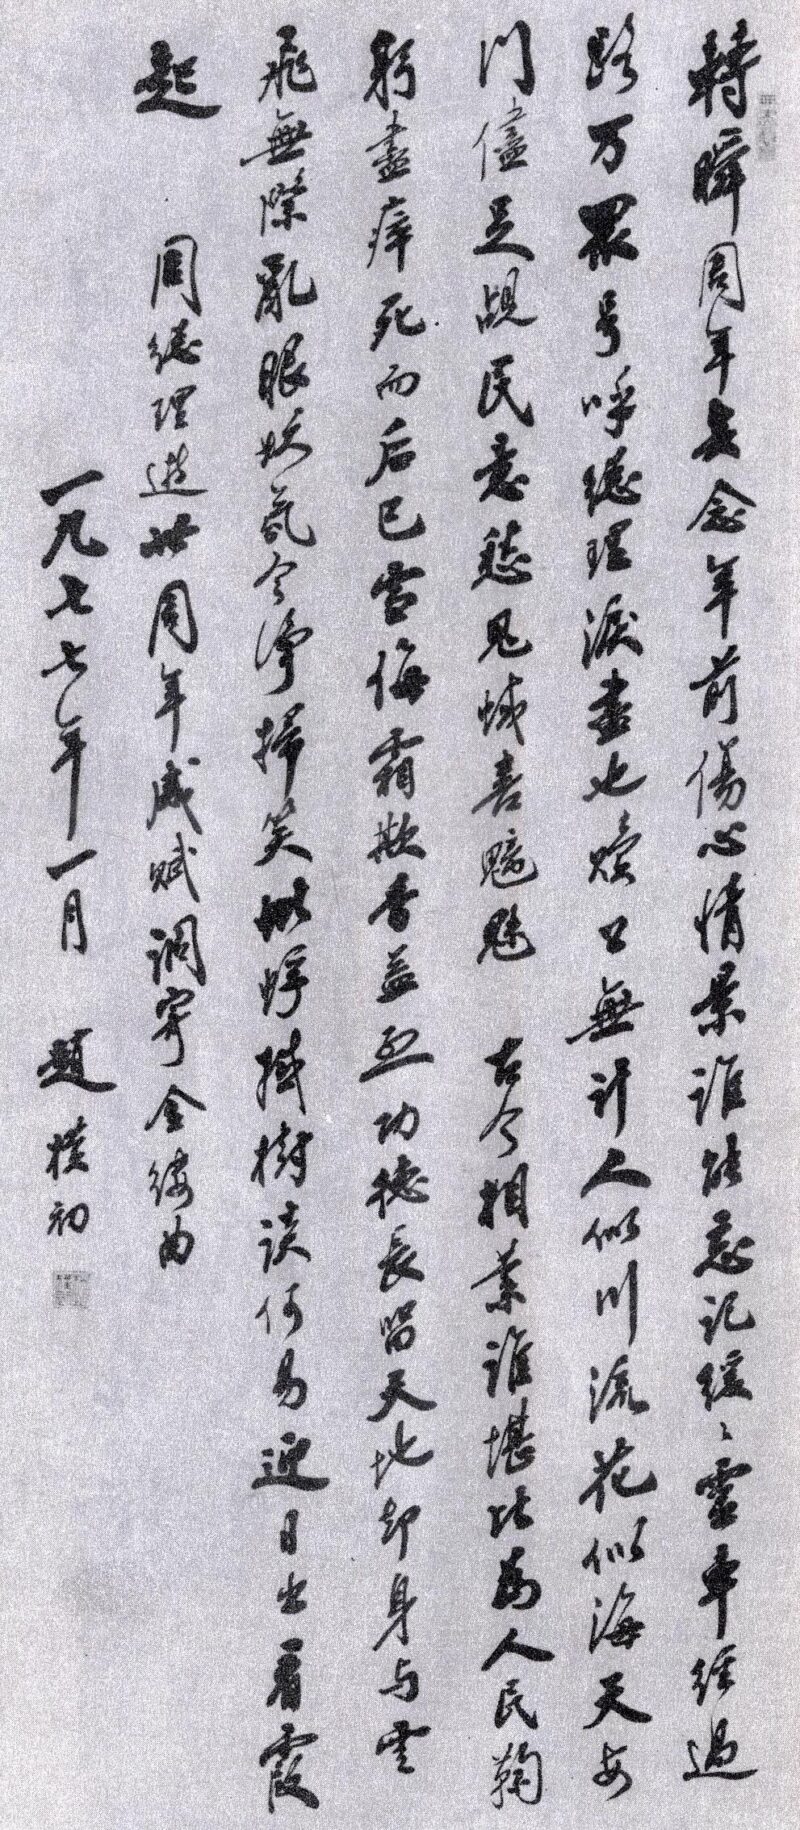 轉瞬周年矣念年前傷心情景誰能忘記緩〻靈車經過
路万眾号呼總理淚盡也贖公無計人似川流花似海天安
门儘足觇民意愁鬼蜮喜魑魅 古今相業誰堪比為人民鞠
躬盡瘁死而后已雪侮霜欺香益烈功德長留天地却身与雲
飛無際亂眼妖氛今淨掃笑蚍蜉撼樹談何易迎日出看霞
起 周總理逝世周年感賦調寄金縷曲
一九七七年一月 趙樸初